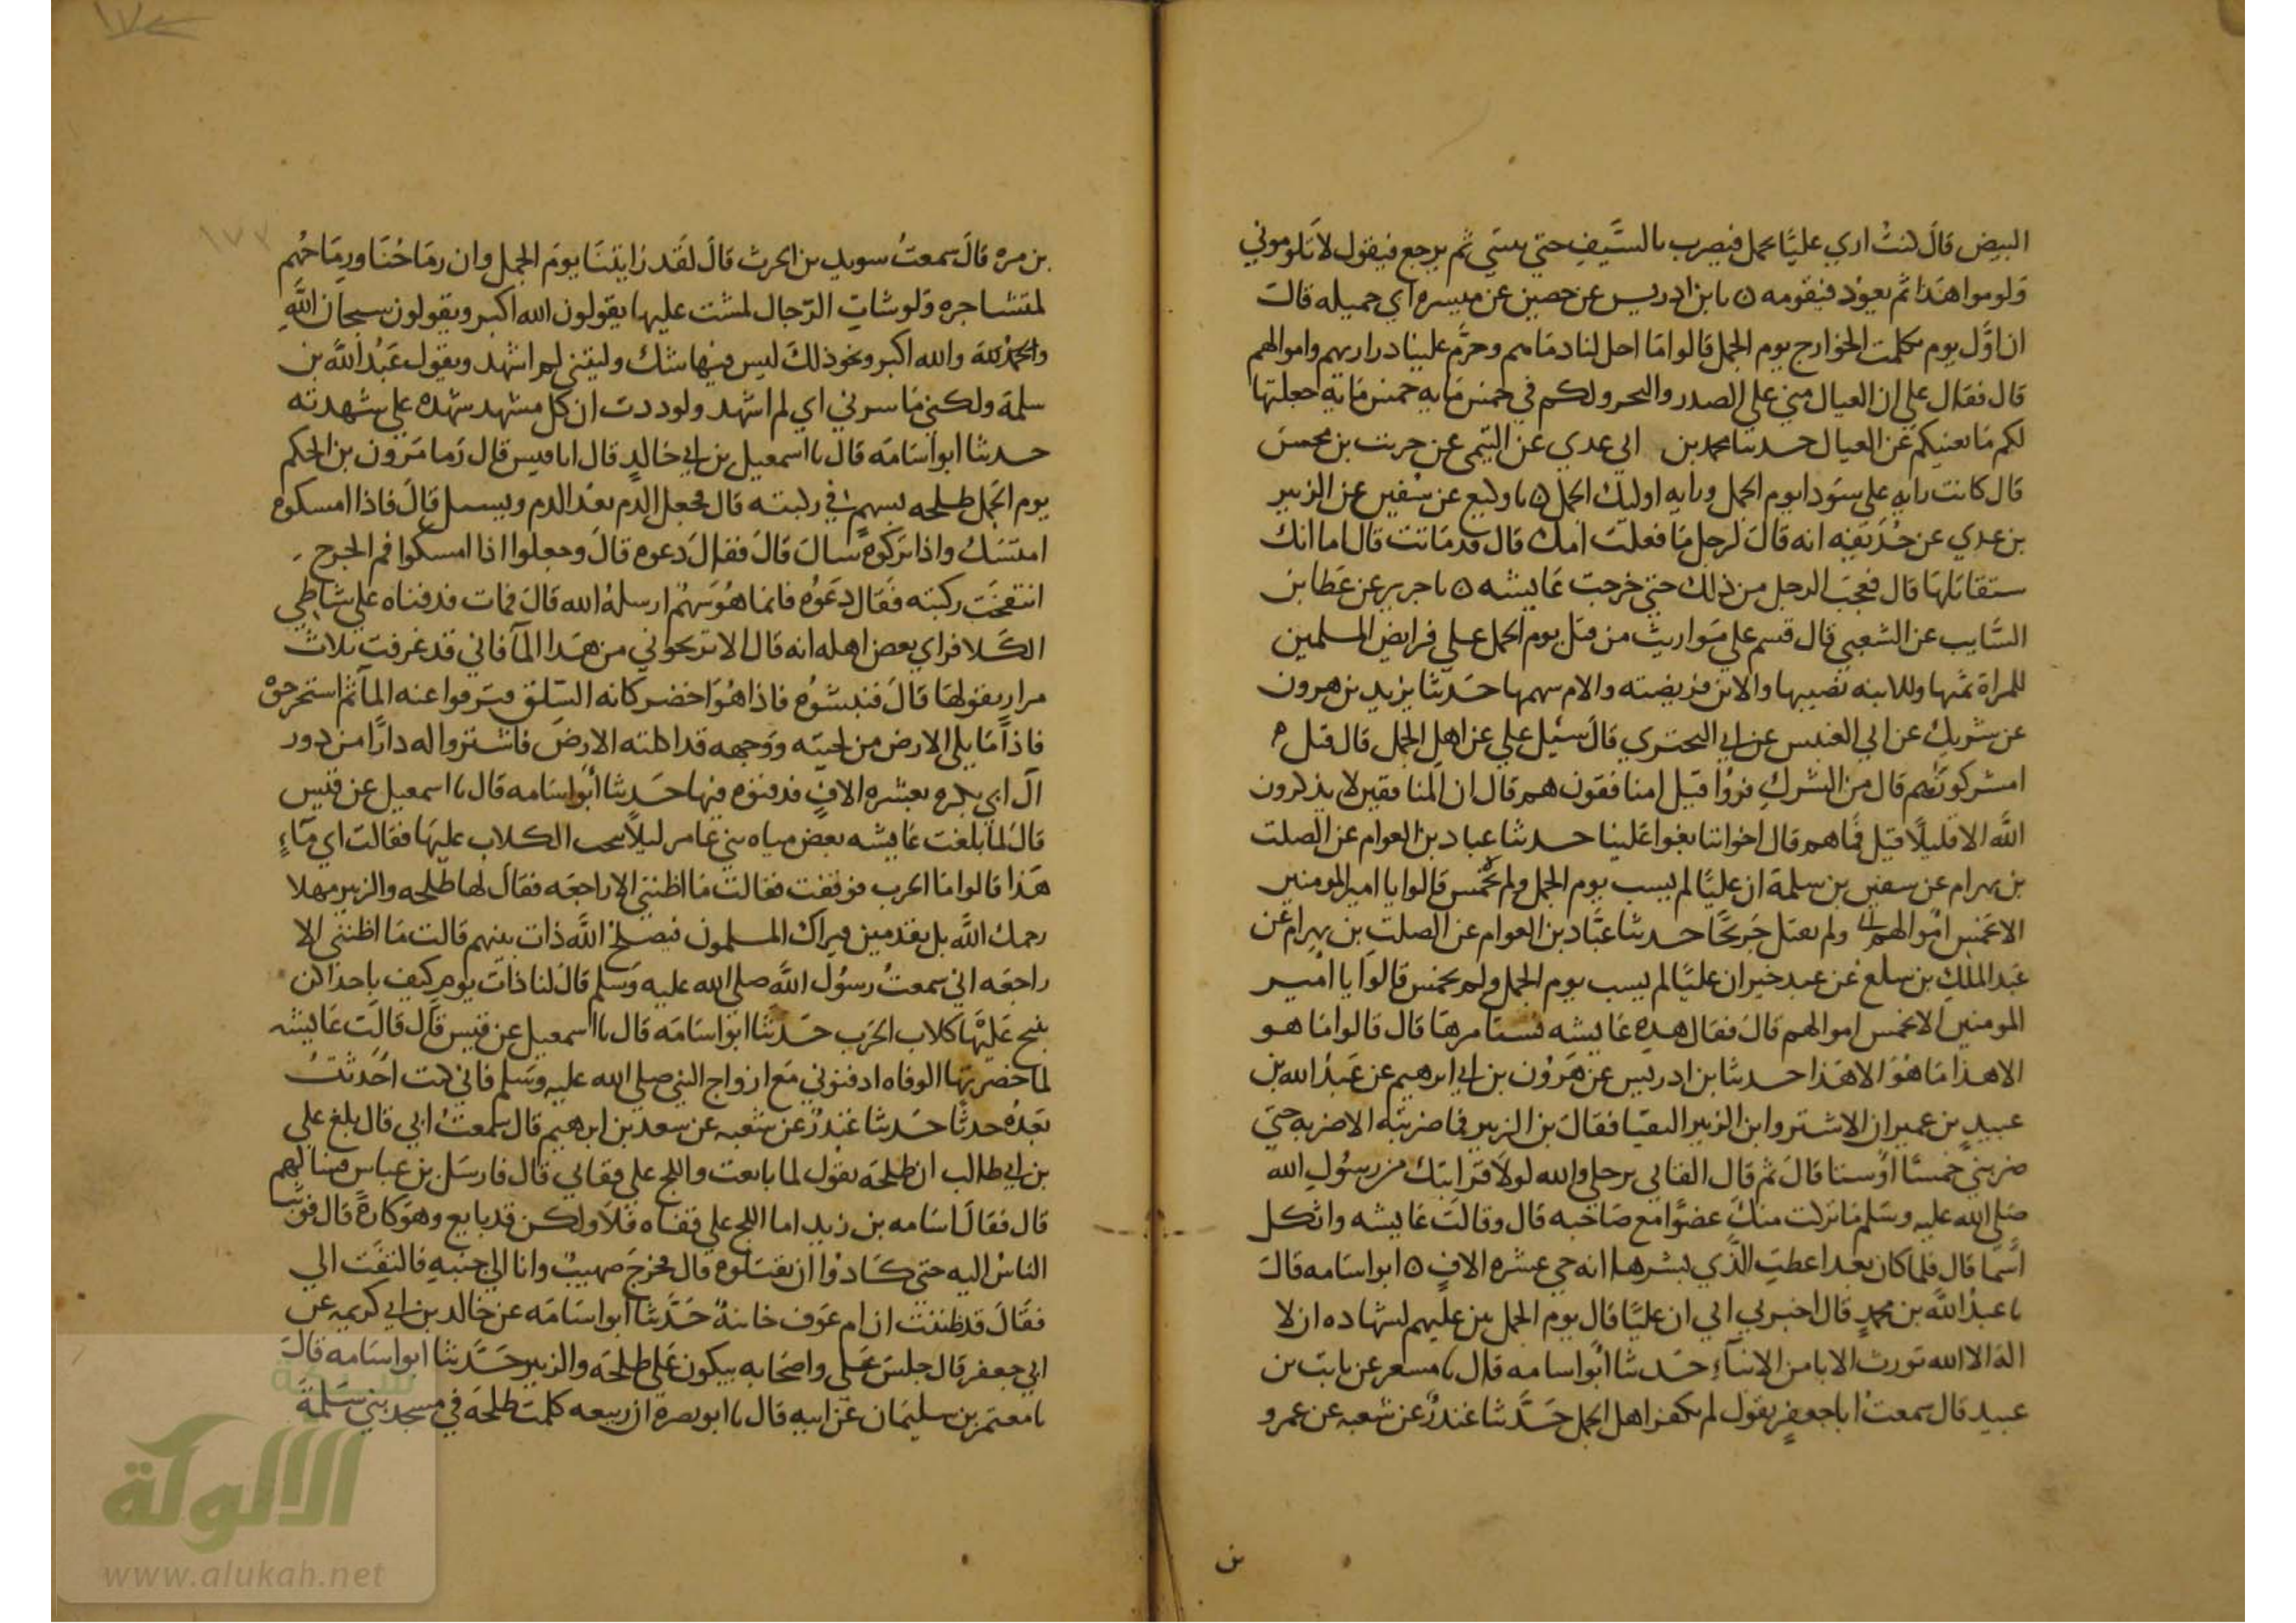 البيض قال كنت اري عليا يحمل فيضرب بالسيف حتي ينثني ثم يرجع فيقول لا تلوموني
ولوموا هذا ثم يعود فيقومه ٥ نا بن ادريس عن حصين عن ميسره ابي جميله قال
ان اول يوم تكلمت الخوارج يوم الجمل قالوا ما احل لنا دماهم وحرم علينا دراريهم واموالهم
قال فقال علي ان العيال مني علي الصدر والنحر ولكم في خمس مايه خمس مايه جعلتها
لكم ما يغنيكم عن العيال حدثنا محمد بن ابي عدي عن التيمي عن حريث بن محسن
قال كانت رايه علي سودا يوم الجمل ورايه اوليك الجمل ٥ نا وكيع عن سفين عن الزبير
بن عدي عن حذيفه انه قال لرجل ما فعلت امك قال قد ماتت قال اما انك
ستقاتلها قال فعجب الرجل من ذلك حتي خرجت عايشه ٥ نا جرير عن عطا بن
السايب عن الشعبي قال قسم علي مواريث من قتل يوم الجمل علي فرايض المسلمين
للمراة ثمنها وللابنه نصيبها والابن فريضته والام سهمها حدثنا يزيد بن هرون
عن شريك عن ابي العنبس عن ابي البختري قال سئيل علي عن اهل الجمل قال قيل
امشركون هم قال من الشرك فروا قيل امنافقون هم قال ان المنافقين لا يذكرون
الله الا قليلا قيل فما هم قال اخواننا بغوا علينا حدثنا عباد بن العوام عن الصلت
بن بهرام عن سفين بن سلمة ان عليا لم يسب يوم الجمل ولم يخمس قالوا يا امير المومنين
الا تخمس اموالهم ولم يقتل جريحا حدثنا عباد بن العوام عن الصلت بن بهرام عن
عبد الملك بن سلع عن عبد خير ان عليا لم يسب يوم الجمل ولم يخمس قالوا يا امير
المومنين الا تخمس اموالهم قال فقال هذه عايشه تستامرها قال قالوا ما هو
الا هذا ما هو الا هذا حدثنا بن ادريس عن هرون بن ابي ابرهيم عن عبد الله بن
عبيد بن عمير ان الاشتر وابن الزبير التقيا فقال بن الزبير فما ضربته الا ضربه حتي
ضربني خمسا او ستا قال ثم قال القاني برجلي والله لولا قرابتك من رسول الله
صلي الله عليه وسلم ما تركت منك عضوا مع صاحبه قال وقالت عايشه واثكل
اسما قال فلما كان بعد اعطت الذي بشرها انه حي عشره الاف ٥ ابو اسامه قال
نا عبد الله بن محمد قال اخبرني ابي ان عليا قال يوم الجمل نمن عليهم بشهاده ان لا
اله الا الله نورث الابا من الابناء حدثنا ابو اسامه قال نا مسعر عن ثابت بن
عبيد قال سمعت ابا جعفر يقول لم يكفر اهل الجمل حدثنا غندر عن شعبه عن عمرو
بن
بن مره قال سمعت سويد بن الحرث قال لقد رايتنا يوم الجمل وان رماحنا ورماحهم
لمتشاجره ولو شات الرجال لمشت عليها يقولون الله اكبر ويقولون سبحان الله
والحمد لله والله اكبر ونحو ذلك ليس فيها شك وليتني لم اشهد ويقول عبد الله بن
سلمة ولكني ما سرني اني لم اشهد ولوددت ان كل مشهد شهده علي شهدته
حدثنا ابو اسامه قال نا اسمعيل بن ابي خالد قال انا قيس قال رما مرون بن الحكم
يوم الجمل طلحه بسهم في ركبته قال فجعل الدم يغذ الدم ويسيل قال فاذا امسكوه
امتسك واذا تركوه سال قال فقال دعوه قال وجعلوا اذا امسكوا فم الجرح
انتفخت ركبته فقال دعوه فانما هو سهم ارسله الله قال فمات فدفناه علي شاطي
الكلا فراي بعض اهله انه قال الا تريحوني من هذا الما فاني قد غرقت ثلاث
مرار يقولها قال فنبشوه فاذا هو اخضر كانه السلق فنزفوا عنه الما ثم استخرجوه
فاذا ما يلي الارض من لحيته ووجهه قد اكلته الارض فاشتروا له دارا من دور
ال ابي بكره بعشره الاف فدفنوه فيها حدثنا ابو اسامه قال نا اسمعيل عن قيس
قال لما بلغت عايشه بعض مياه بني عامر ليلا نبحت الكلاب عليها فقالت اي ماء
هذا قالوا ما الحوب فوقفت فقالت ما اظنني الا راجعه فقال لها طلحه والزبير مهلا
رحمك الله بل تقدمين فيراك المسلمون فيصلح الله ذات بينهم قالت ما اظنني الا
راجعه اني سمعت رسول الله صلي الله عليه وسلم قال لنا ذات يوم كيف باحداكن
ينبح عليها كلاب الحوب حدثنا ابو اسامه قال نا اسمعيل عن قيس قال قالت عايشه
لما حضرتها الوفاه ادفنوني مع ازواج النبي صلي الله عليه وسلم فاني كنت احدثت
بعده حدثا حدثنا غندر عن شعبه عن سعد بن ابرهيم قال سمعت ابي قال بلغ علي
بن ابي طالب ان طلحة يقول لما بايعت واللج علي قفاي قال فارسل بن عباس فسالهم
قال فقال اسامه بن زيد اما اللج علي قفاه فلا ولكن قد بايع وهو كاره قال فوثب
الناس اليه حتي كادوا ان يقتلوه قال فخرج صهيب وانا الي جنبه فالتفت الي
فقال قد ظننت ان ام عوف خاينة حدثنا ابو اسامه عن خالد بن ابي كريمه عن
ابي جعفر قال جلس علي واصحابه يبكون علي طلحه والزبير حدثنا ابو اسامه قال
نا معتمر بن سليمان عن ابيه قال نا ابو نصره ان ربيعه كلمت طلحة في مسجد بني سلمة
شبكة
الألوكة
www.alukah.net